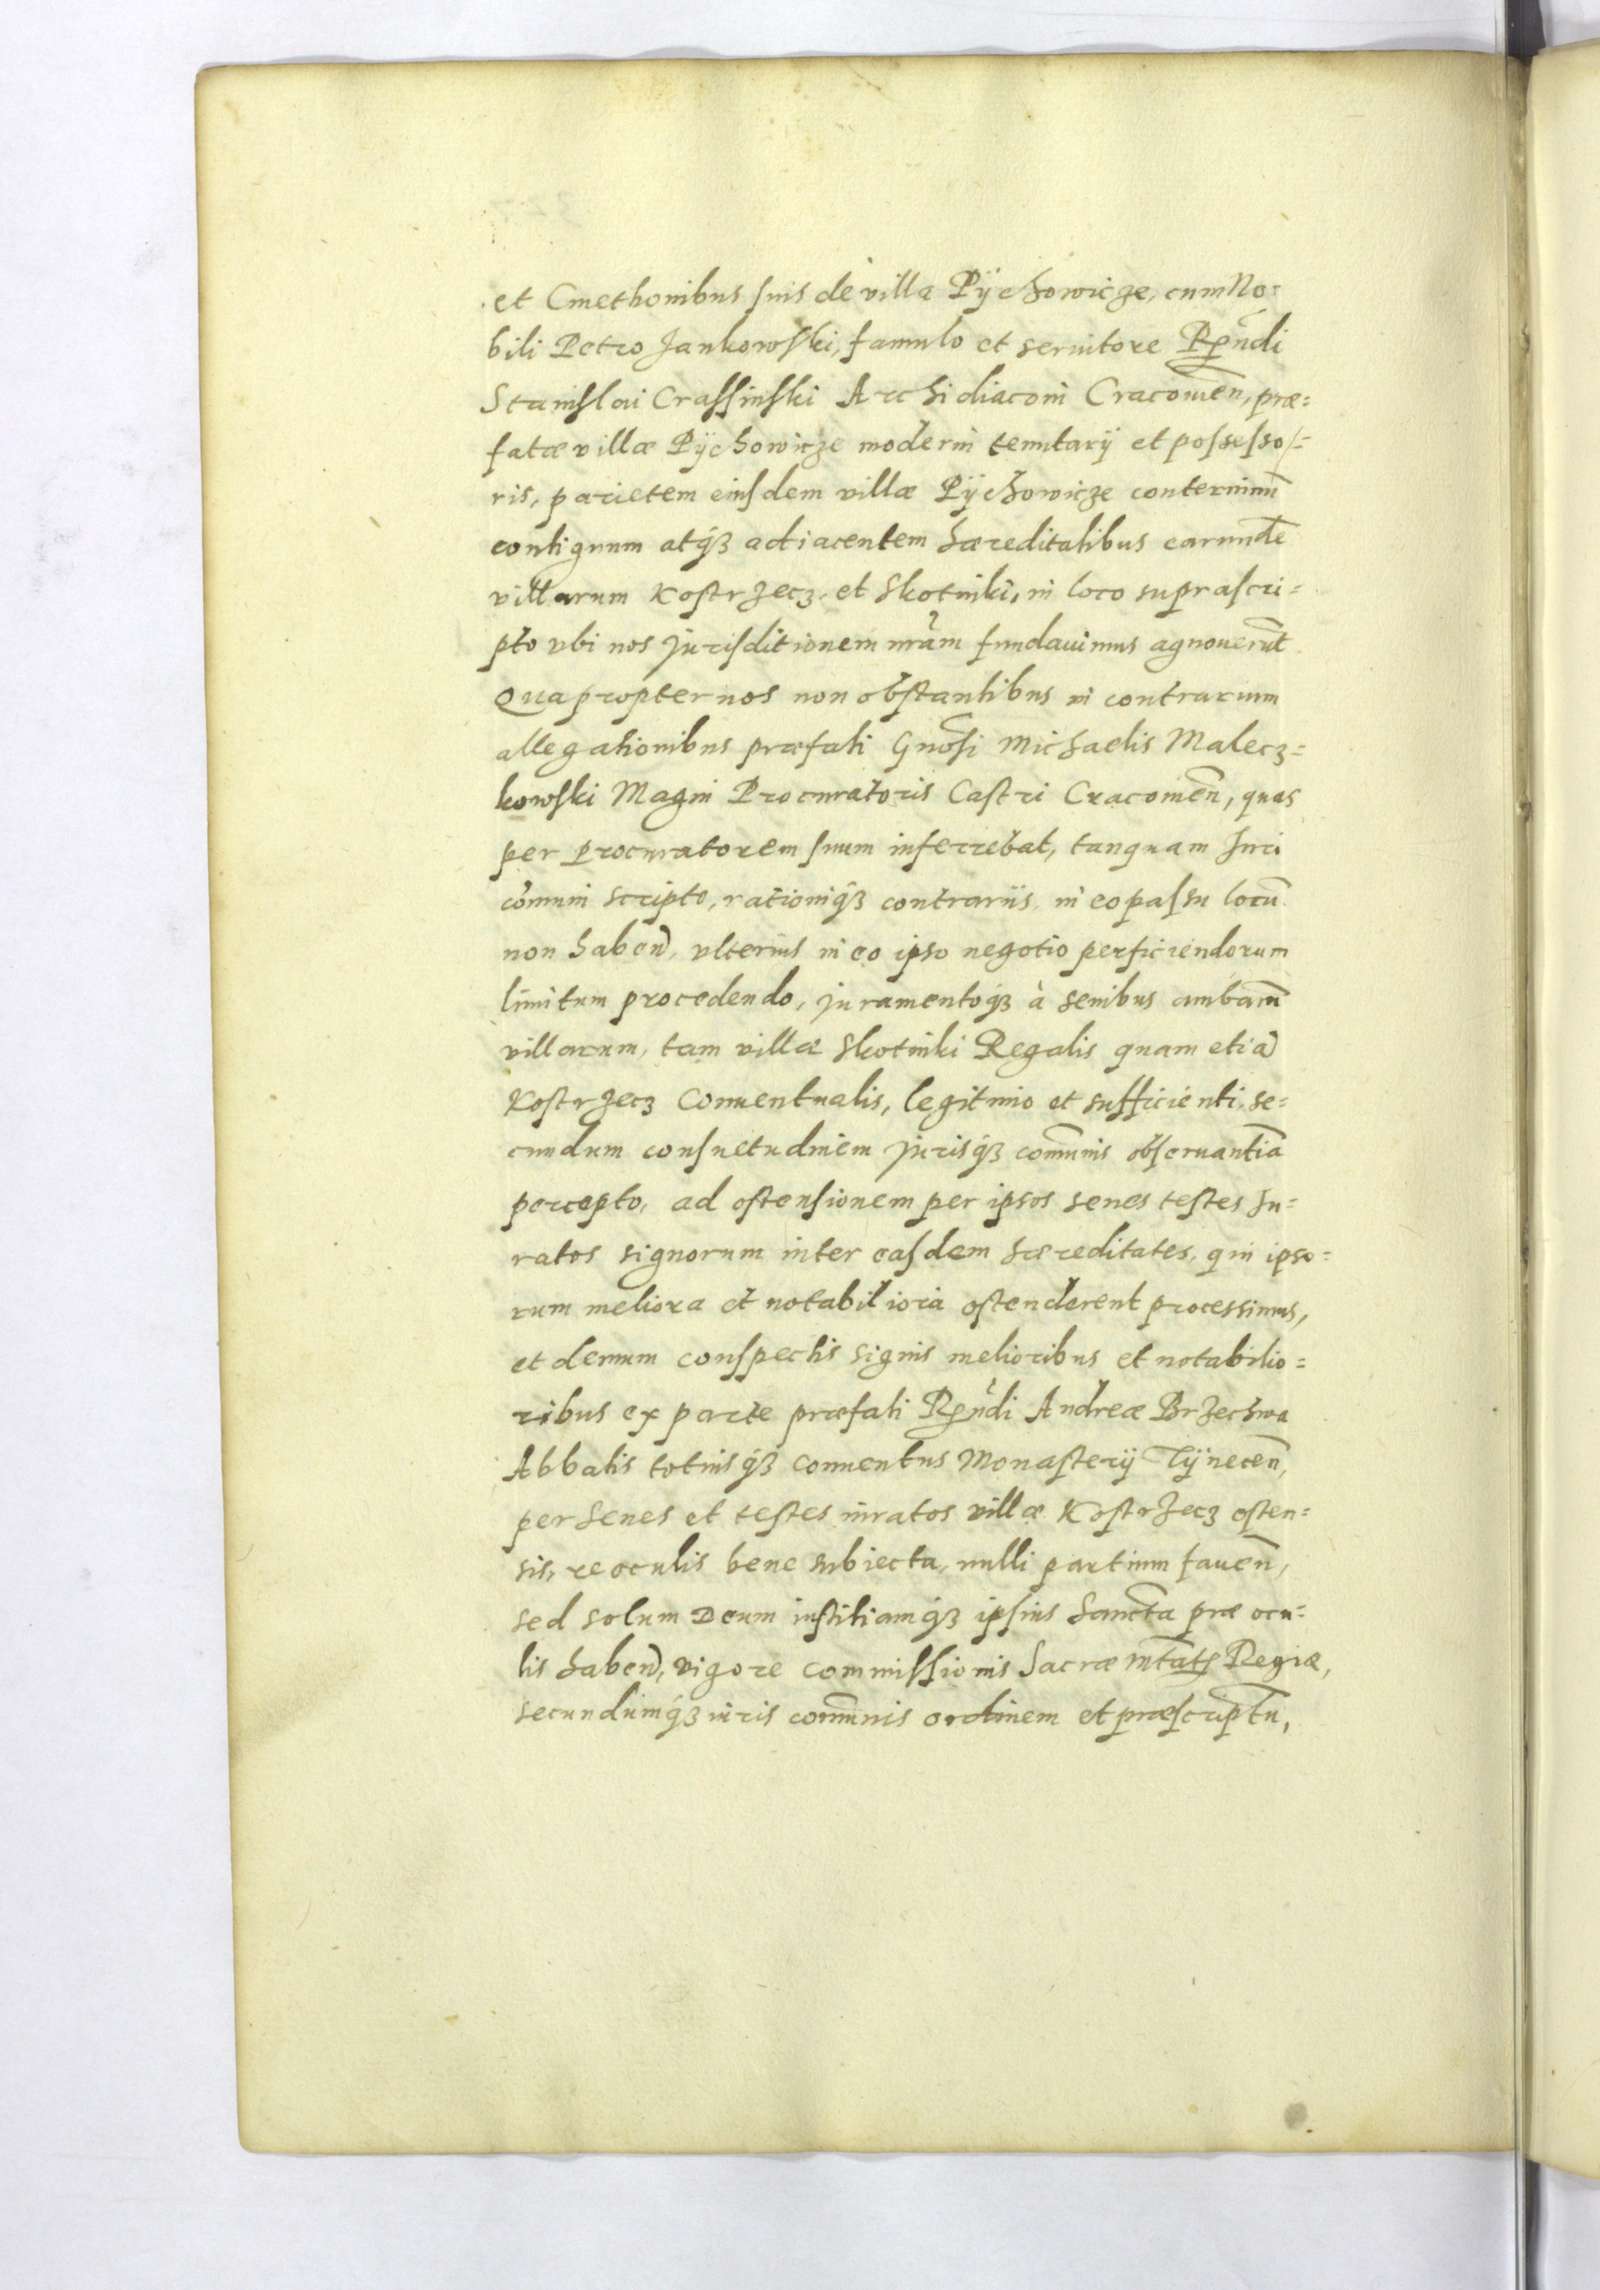 et Cmethonibus suis de villa Pÿchowicze, cum No=
bili Petro Jankowski, famulo et seruitore Rṇdi
Stanislai Crassinski Archidiaconi Cracouien̄, præ=
fatæ villæ Pÿchowicze moderni tenutarÿ et possesso=
ris, parietem eiusdem villæ Pÿchowicze conterminū
contiguum atq́ʒ adiacentem hæreditatibus earundē
villarum Kostrzecz, et Skotniki, in loco suprascri=
pto vbi nos Jurisditionem nr̃am fundauimus agnouerūt.
Quapropter nos non obstantibus in contrarium
allegationibus præfati Gnōsi Michaelis Malecz=
kowski Magni Procuratoris Castri Cracouien̄, quas
per Procuratorem suum inferrebat, tanquam Juri
cōmuni scripto, rationiq́ʒ contrariis, in eo passu locū
non haben̄, vlterius in eo ipso negotio perficiendorum
limitum procedendo, Juramentoq́ʒ à senibus ambarū
villarum, tam villæ Skotniki Regalis quam etiā
Kostrzecz Conuentualis, legitimo et sufficienti, se=
cundum consuetudinem Jurisq́ʒ com̄unis obseruantiā
percepto, ad ostensionem per ipsos senes testes Ju=
ratos signorum inter easdem hæreditates, qui ipso=
rum meliora et notabiliora ostenderent processimus,
et demum conspectis signis melioribus et notabilio=
ribus ex parte præfati Rṇdi Andreæ Brzechwa
Abbatis totiusq́ʒ conuentus Monasterÿ Tÿnecen̄,
per senes et testes iuratos villæ Kostrzecz osten=
sis, re oculis bene subiecta, nulli partium fauen̄,
sed solum Deum iustitiamq́ʒ ipsius sanctā præ ocu=
lis haben̄, vigore commissionis Sacræ Mtatis Regiæ,
secundumq́ʒ iuris com̄unis ordinem et præscriptū,